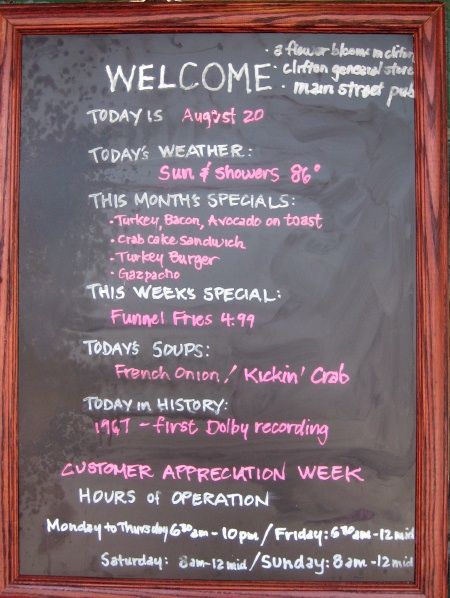 • a flower blooms in clifton
WELCOME • clifton general store
• main street pub
TODAY IS August 20
TODAY'S WEATHER:
Sun & showers 86°
THIS MONTH'S SPECIALS:
• Turkey, Bacon, Avocado on toast
• Crab Cake Sandwich
• Turkey Burger
• Gazpacho
THIS WEEK'S SPECIAL:
Funnel Fries 4.99
TODAY'S SOUPS:
French Onion / Kickin' Crab
TODAY in HISTORY:
1967 - first Dolby recording
CUSTOMER APPRECIATION WEEK
HOURS of OPERATION
Monday to Thursday 6:30am - 10pm / Friday: 6:30am - 12mid
Saturday: 8am-12mid / Sunday: 8am - 12mid